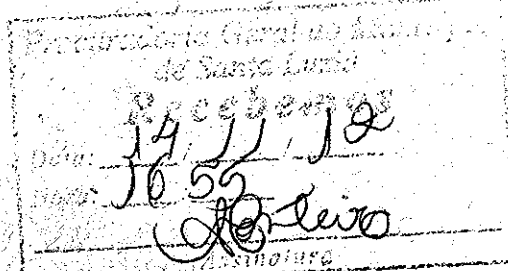 Procuradoria Geral do
de Santa Luzia
Recebemos
Data: 14 / 11 / 12
Hora: 16 55
Assinatura